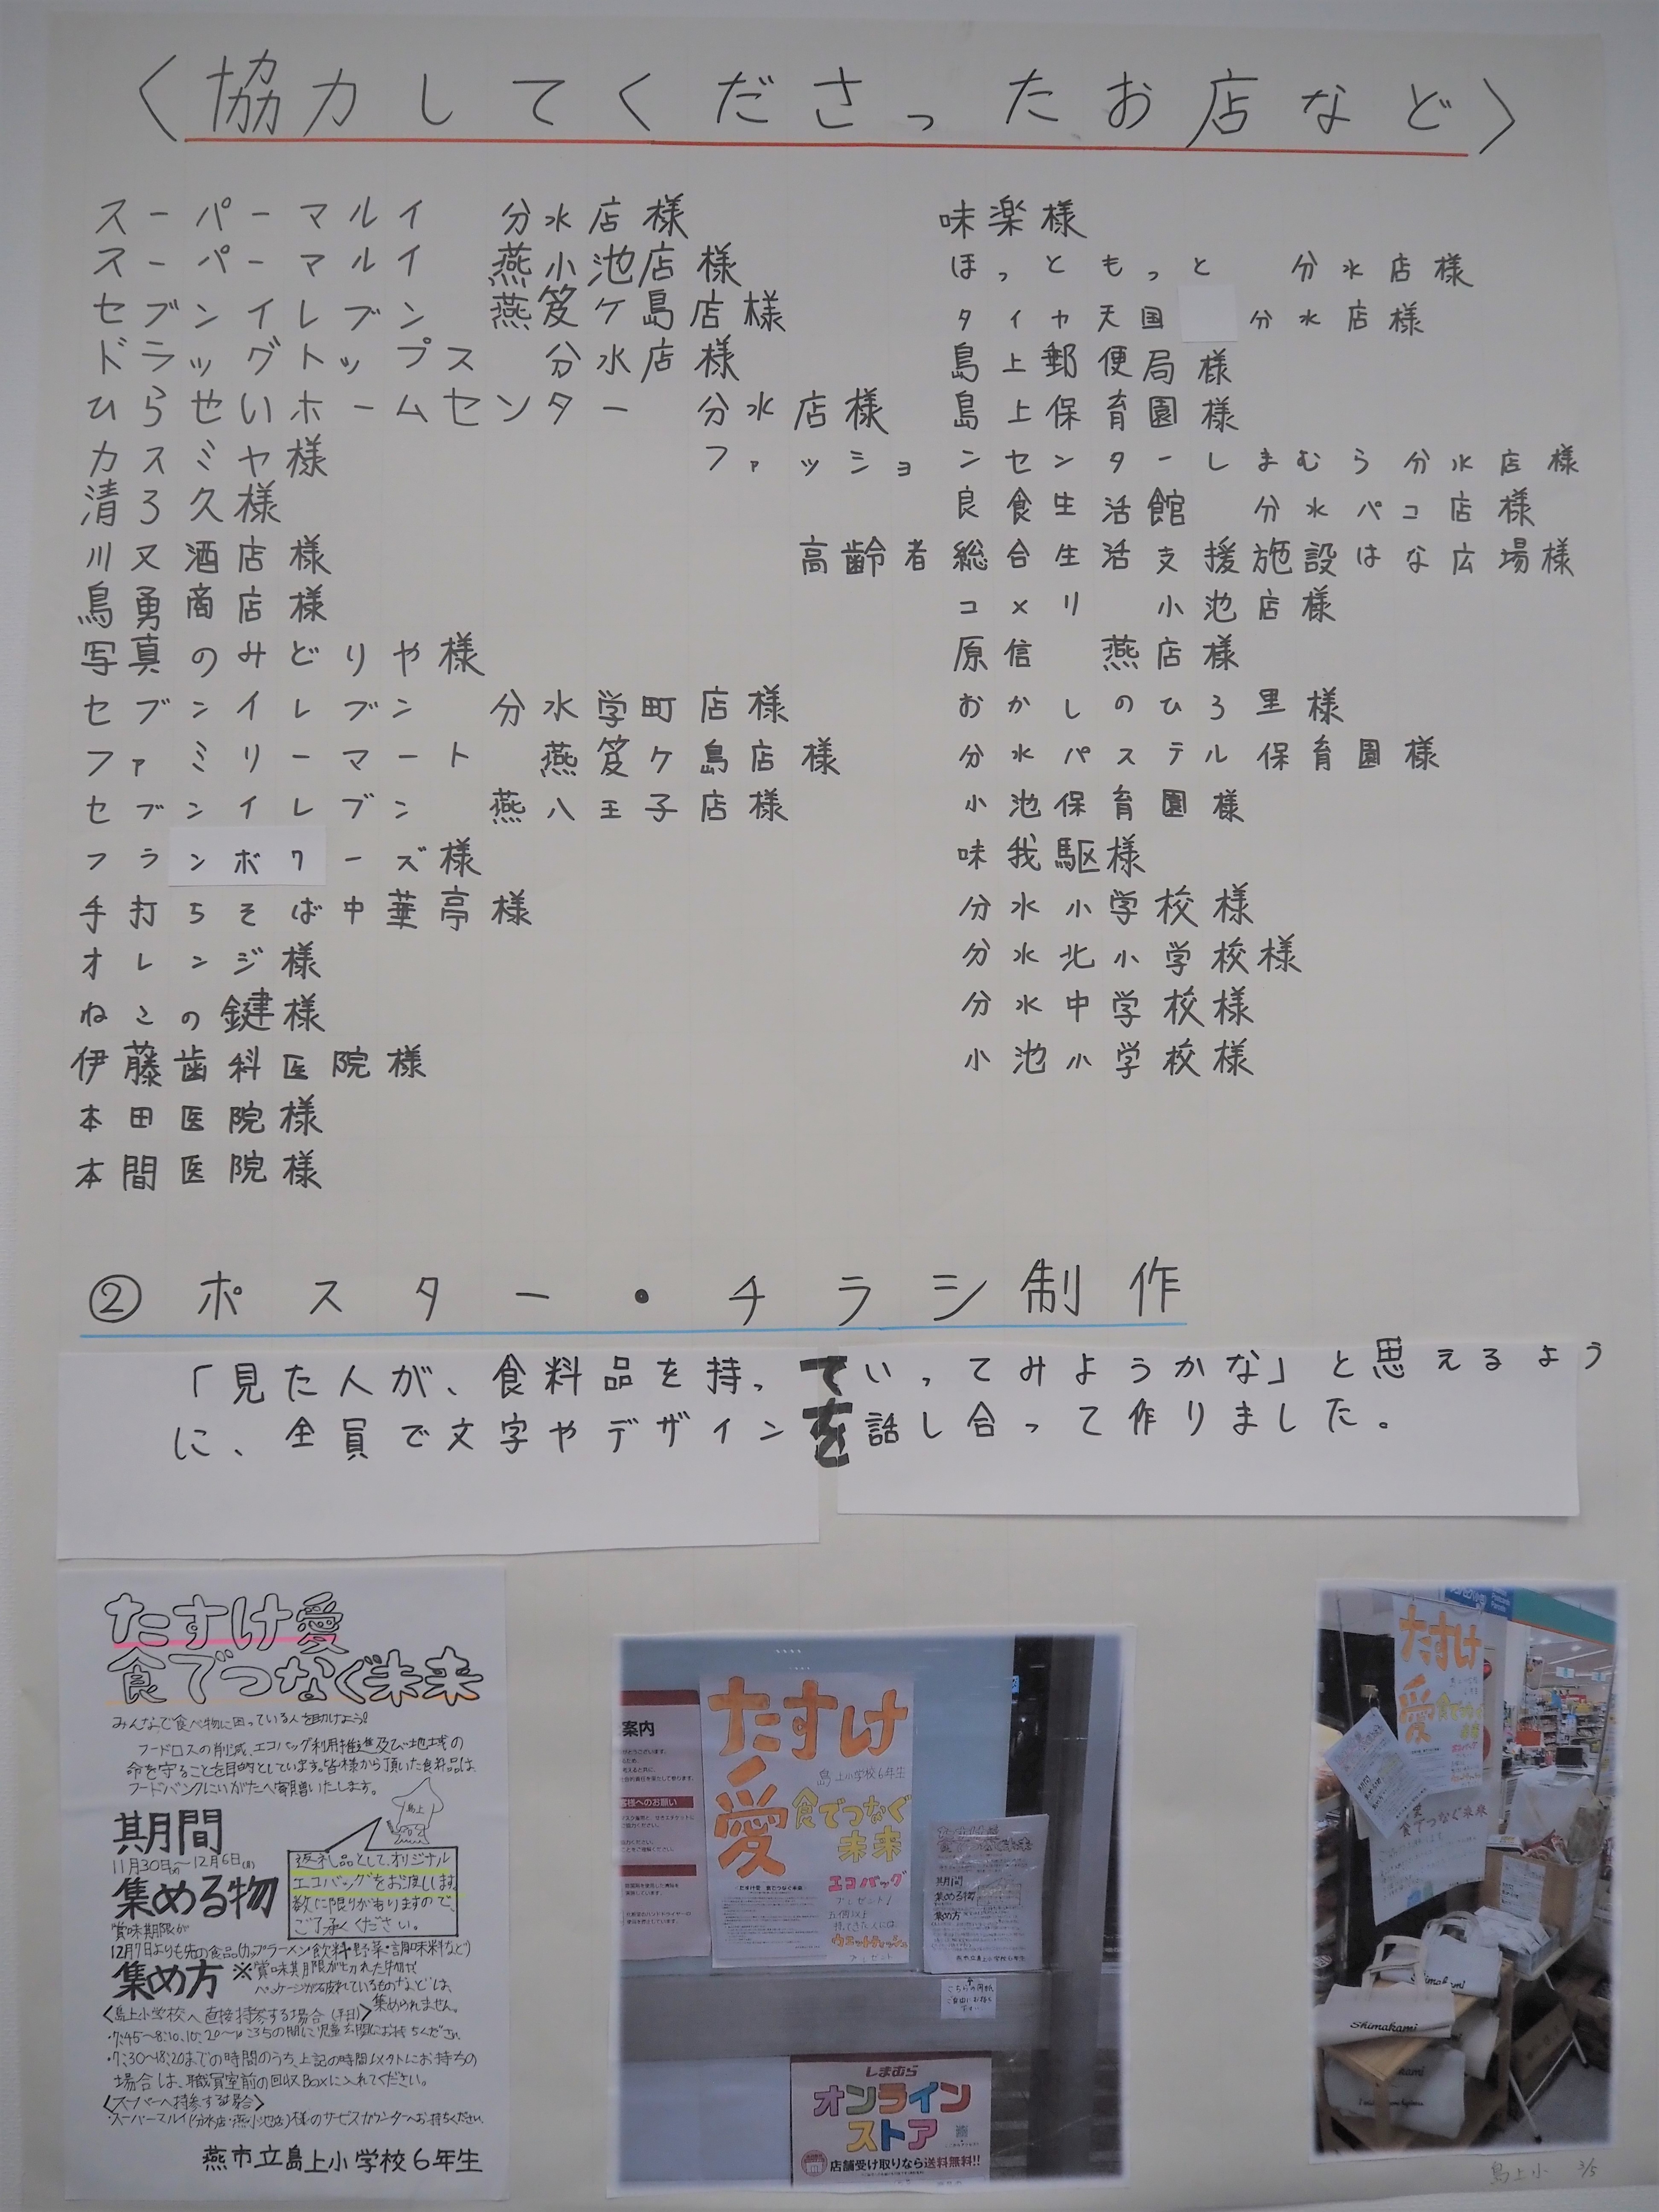 〈協力してくださったお店など〉
スーパーマルイ 分水店様
スーパーマルイ 燕小池店様
セブンイレブン 燕笈ケ島店様
ドラッグトップス 分水店様
ひらせいホームセンター 分水店様
カスミヤ様
清ろ久様
川又酒店様
鳥勇商店様
写真のみどりや様
セブンイレブン 分水学町店様
ファミリーマート 燕笈ケ島店様
セブンイレブン 燕八王子店様
フランボワーズ様
手打ちそば中華亭様
オレンジ様
ねこの鍵様
伊藤歯科医院様
本田医院様
本間医院様
味楽様
ほっともっと 分水店様
タイヤ天国 分水店様
島上郵便局様
島上保育園様
ファッションセンターしまむら分水店様
良食生活館 分水パコ店様
高齢者総合生活支援施設はな広場様
コメリ 小池店様
原信 燕店様
おかしのひろ里様
分水パステル保育園様
小池保育園様
味我駆様
分水小学校様
分水北小学校様
分水中学校様
小池小学校様
②ポスター・チラシ制作
「見た人が、食料品を持っていってみようかな」と思えるよう
に、全員で文字やデザインを話し合って作りました。
たすけ愛
食でつなぐ未来
みんなで食べ物に困っている人を助けよう!
フードロスの削減、エコバッグ利用推進及び地域の
命を守ることを目的としています。皆様から頂いた食料品は、
フードバンクにいがたへ寄贈いたします。
島上
期間
11月30日㈪〜12月6日㈰
返礼品として、オリジナル
エコバッグをお渡しします。
数に限りがありますので、
ご了承ください。
集める物
賞味期限が
12月7日よりも先の食品(カップラーメン・飲料・野菜・調味料など)
集め方
※賞味期限が切れた物や
パッケージが破れているものなどは、
集められません。
〈島上小学校へ直接持参する場合(平日)〉
・7:45〜8:10、10:20〜10:35の間に児童玄関にお持ちください。
・7:30〜18:20までの時間のうち、上記の時間以外にお持ちの
場合は、職員室前の回収Boxに入れてください。
〈スーパーへ持参する場合〉
・スーパーマルイ(分水店・燕小池店)様のサービスカウンターへお持ちください。
燕市立島上小学校6年生
案内
客様へのお願い
たすけ
愛
島上小学校6年生
食でつなぐ
未来
エコバッグ
プレゼント!
五個以上
持ってきた人には、
ウエットティッシュ
プレゼント
期間
集める物
集め方
燕市立島上小学校6年生
こちらの用紙
ご自由にお持ち
下さい
しまむら
オンライン
ストア
店舗受け取りなら送料無料!!
たすけ
愛
食でつなぐ
未来
食でつなぐ未来
Shimakami
Shimakami
島上小 3/5